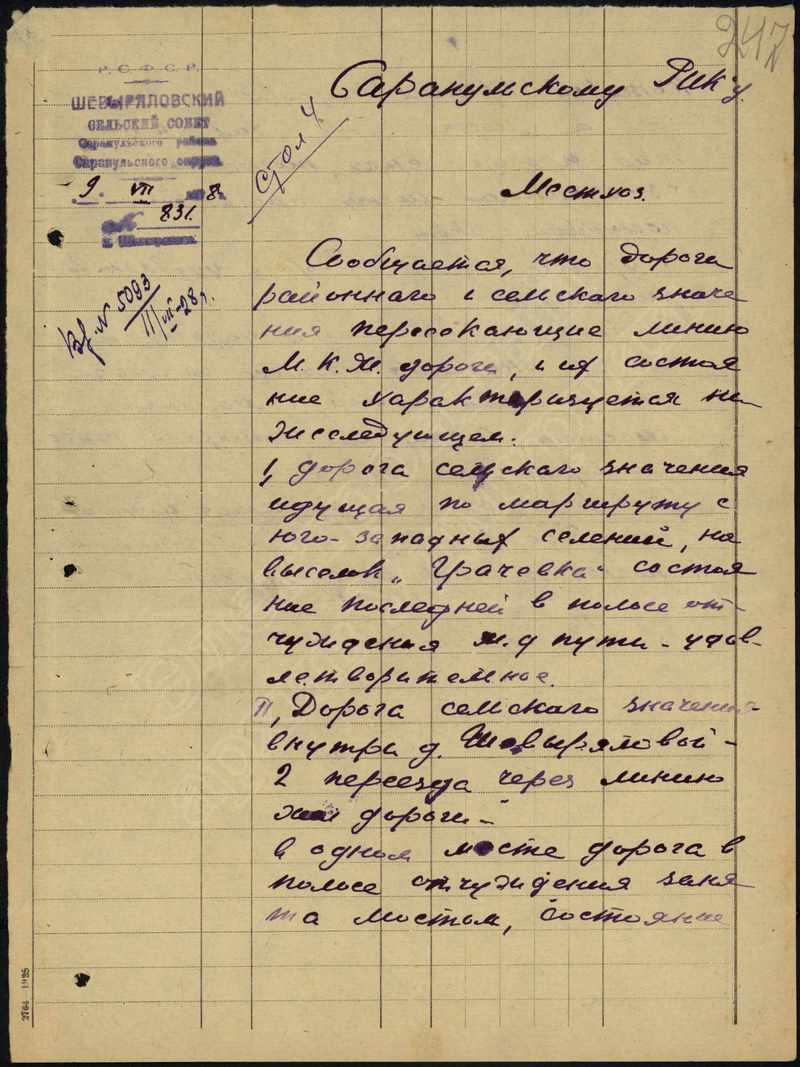 247
Р.С.Ф.С.Р.
ШЕВЫРЯЛОВСКИЙ
СЕЛЬСКИЙ СОВЕТ
Сарапульского района
Сарапульского округа
9 VII 1928 г.
№ 831.
Вх. N 5093
11/VII-28 г.
стол 4
Сарапульскому РИК'у
Местхоз.
Сообщается, что дороги
районнаго и сельскаго значе
ния пересекающие линию
М.К.Ж. дороги, и их состоя
ние характеризуется ни-
жеследующем.
1, дорога сельскаго значения
идущая по маршруту с
юго-западных селений, на
выселок „Грачевка“ состоя
ние последней в полосе от-
чуждения ж.д пути - удов-
летворительное.
II, Дорога сельскаго значения
внутри д. Шевыряловой -
2 переезда через линию
жел дороги -
в одном месте дорога в
полосе отчуждения заня
та мостом, состояние
2764 - 1925